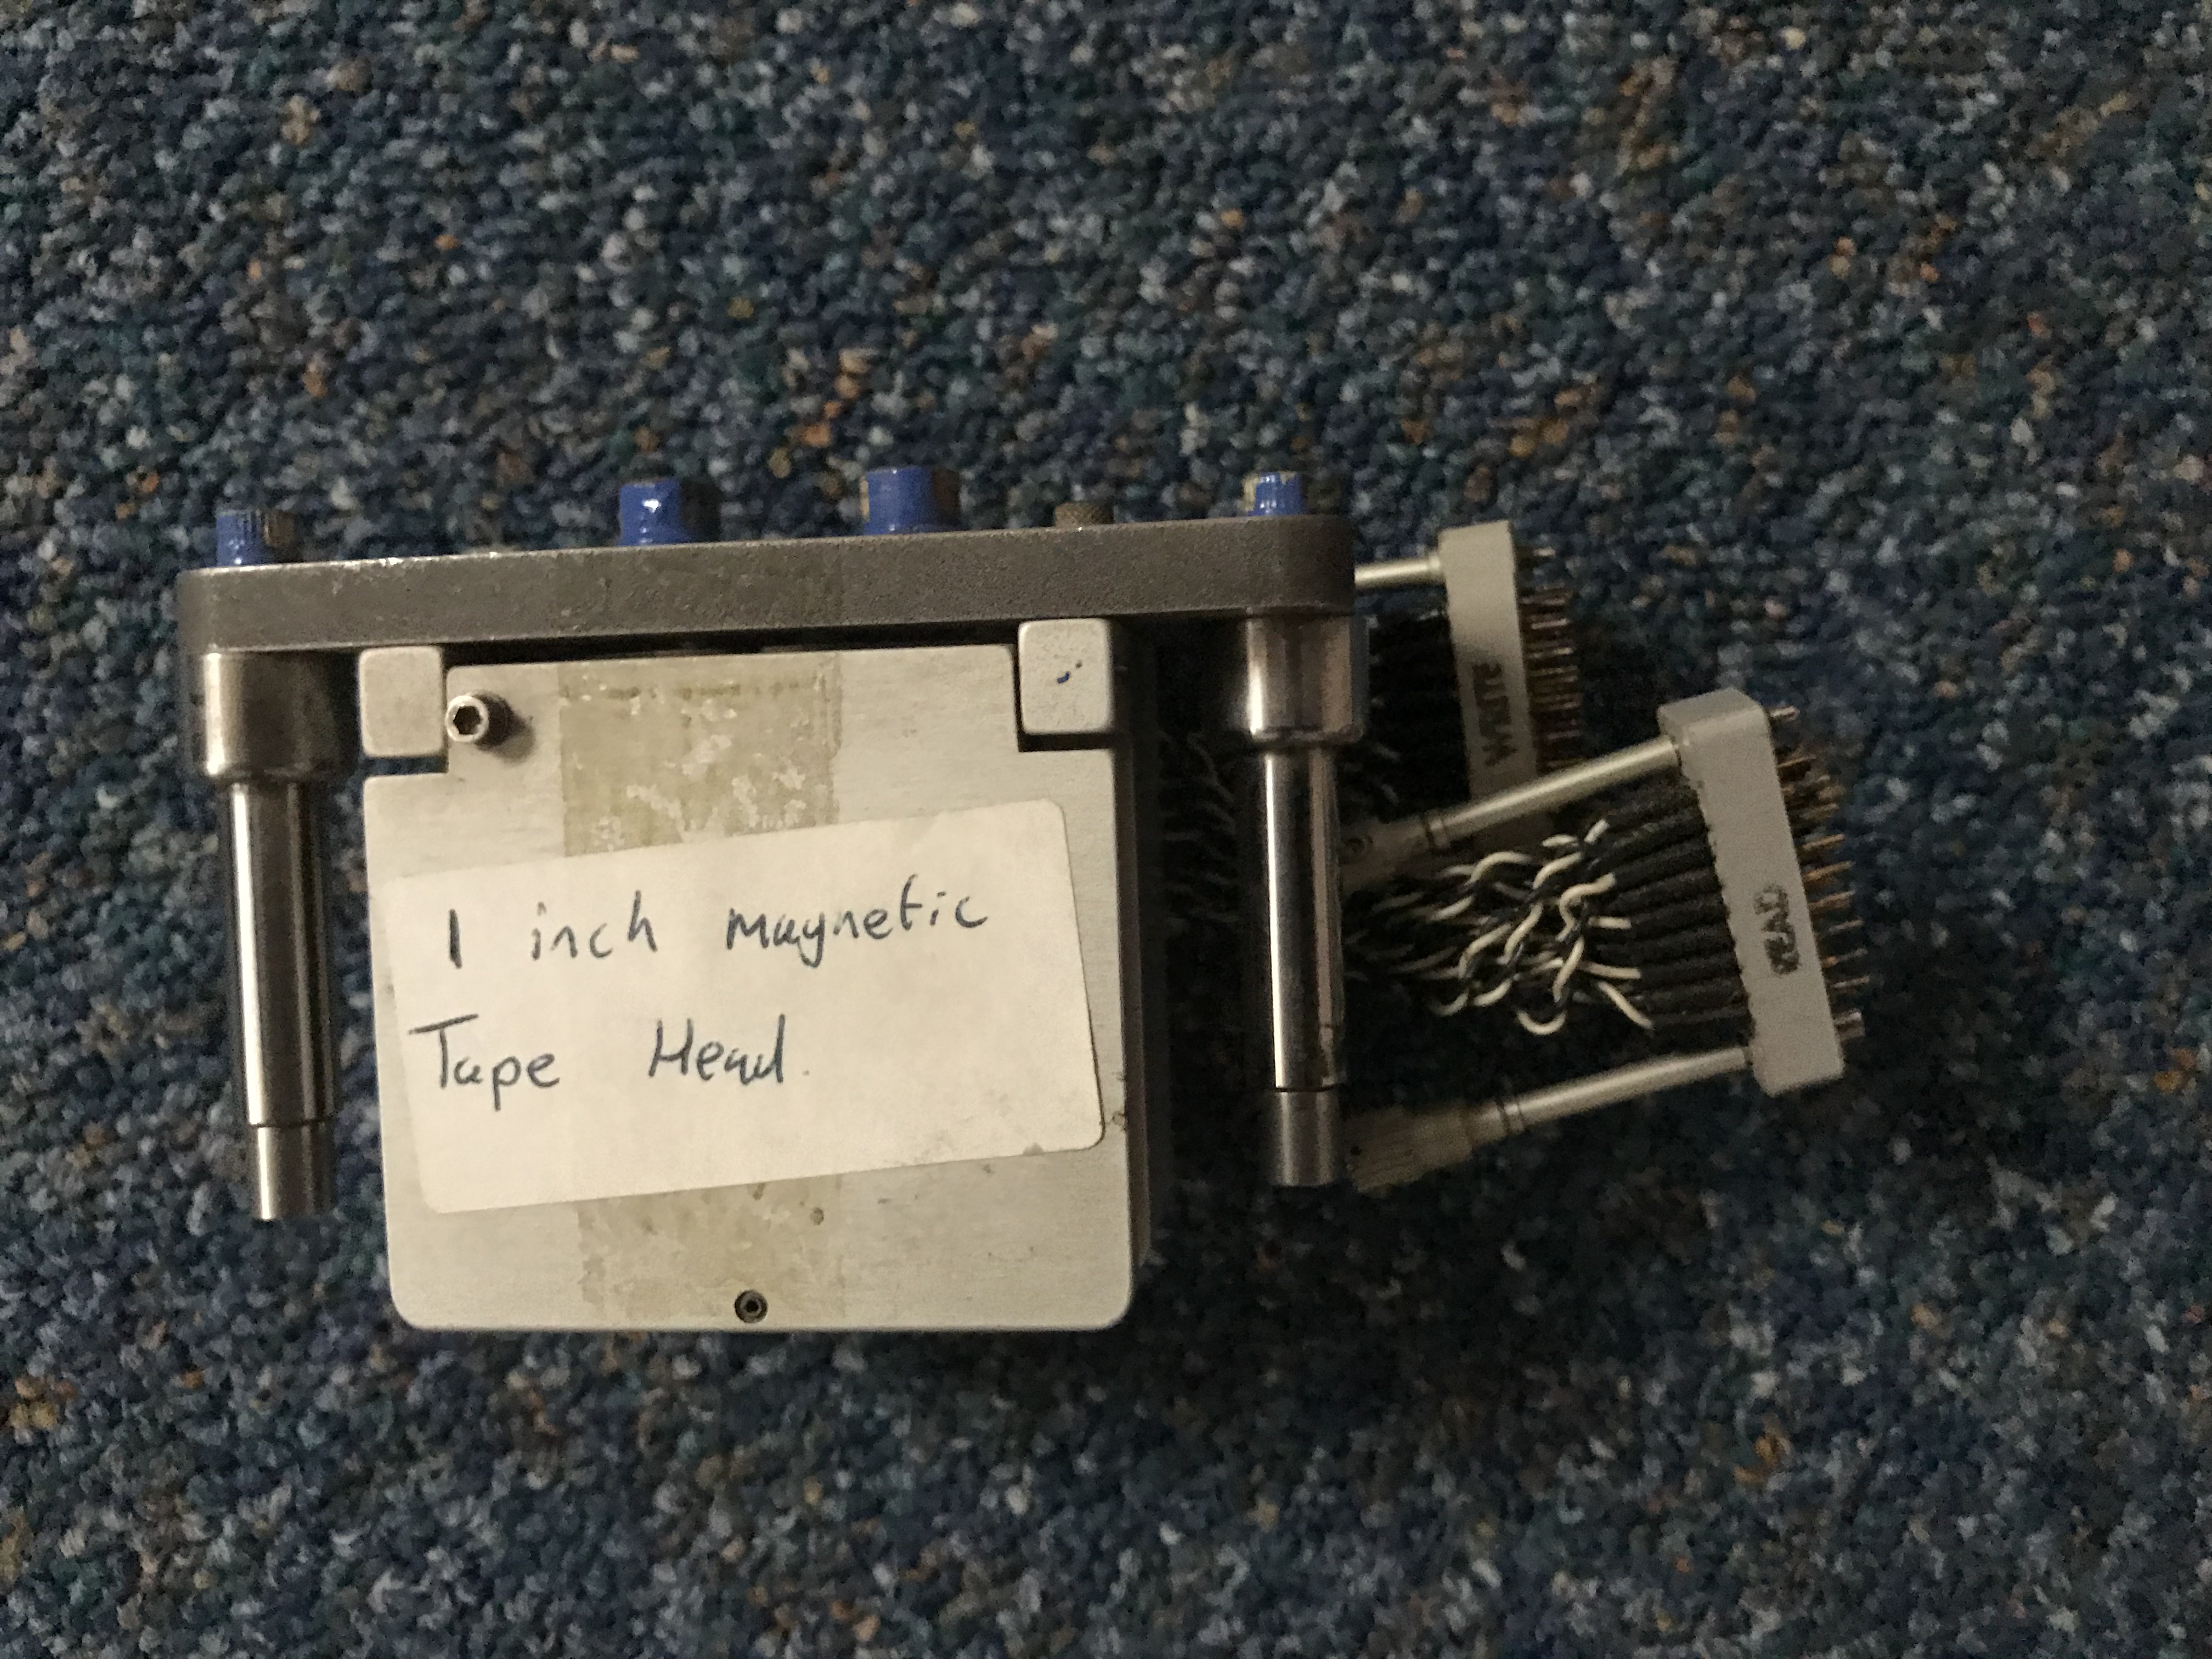 1 inch magnetic
Tape Head.
WRITE
READ